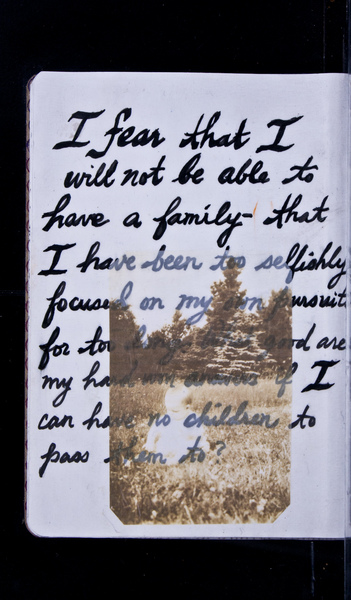 I fear that I
will not be able to
have a family - that
I have been too selfishly
focused on my own pursuits
for too long. What good are
my hard won answers if I
can have no children to
pass them to?